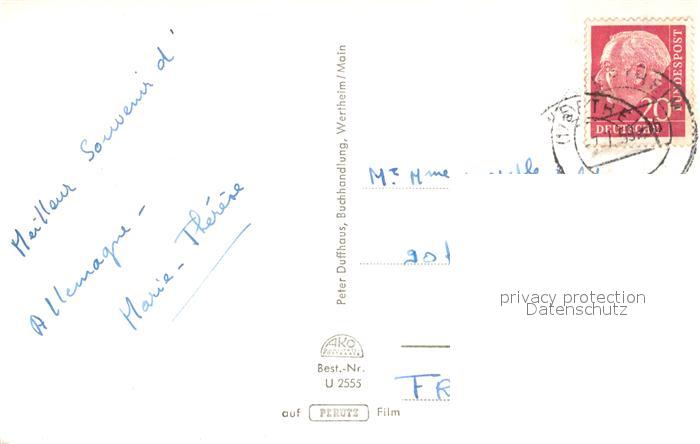 Meilleur Souvenir d'
Allemagne -
Marie-Thérèse
Peter Duffhaus, Buchhandlung, Wertheim/Main
AKO
Best.-Nr.
U 2555
auf PERUTZ Film
DEUTSCHE BUNDESPOST
20
Mr Mme
FR
privacy protection
Datenschutz